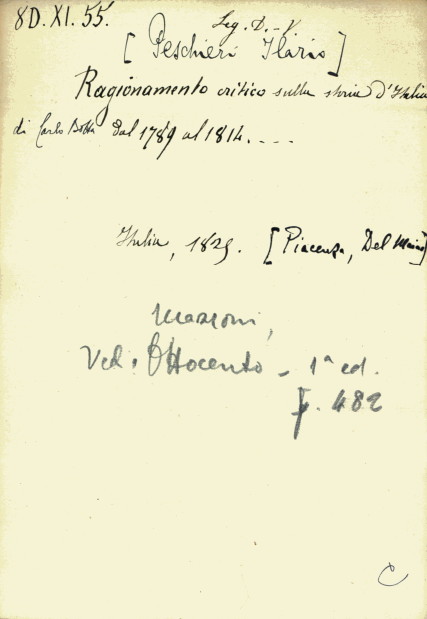 8D. XI. 55.
Leg. D. - V
[Peschieri Ilario]
Ragionamento critico sulla storia d'Italia
di Carlo Botta dal 1789 al 1814. ...
Italia, 1825. [Piacenza, Del Maino]
Mazzoni,
Ved. Ottocento - 1ª ed.
p. 482
C